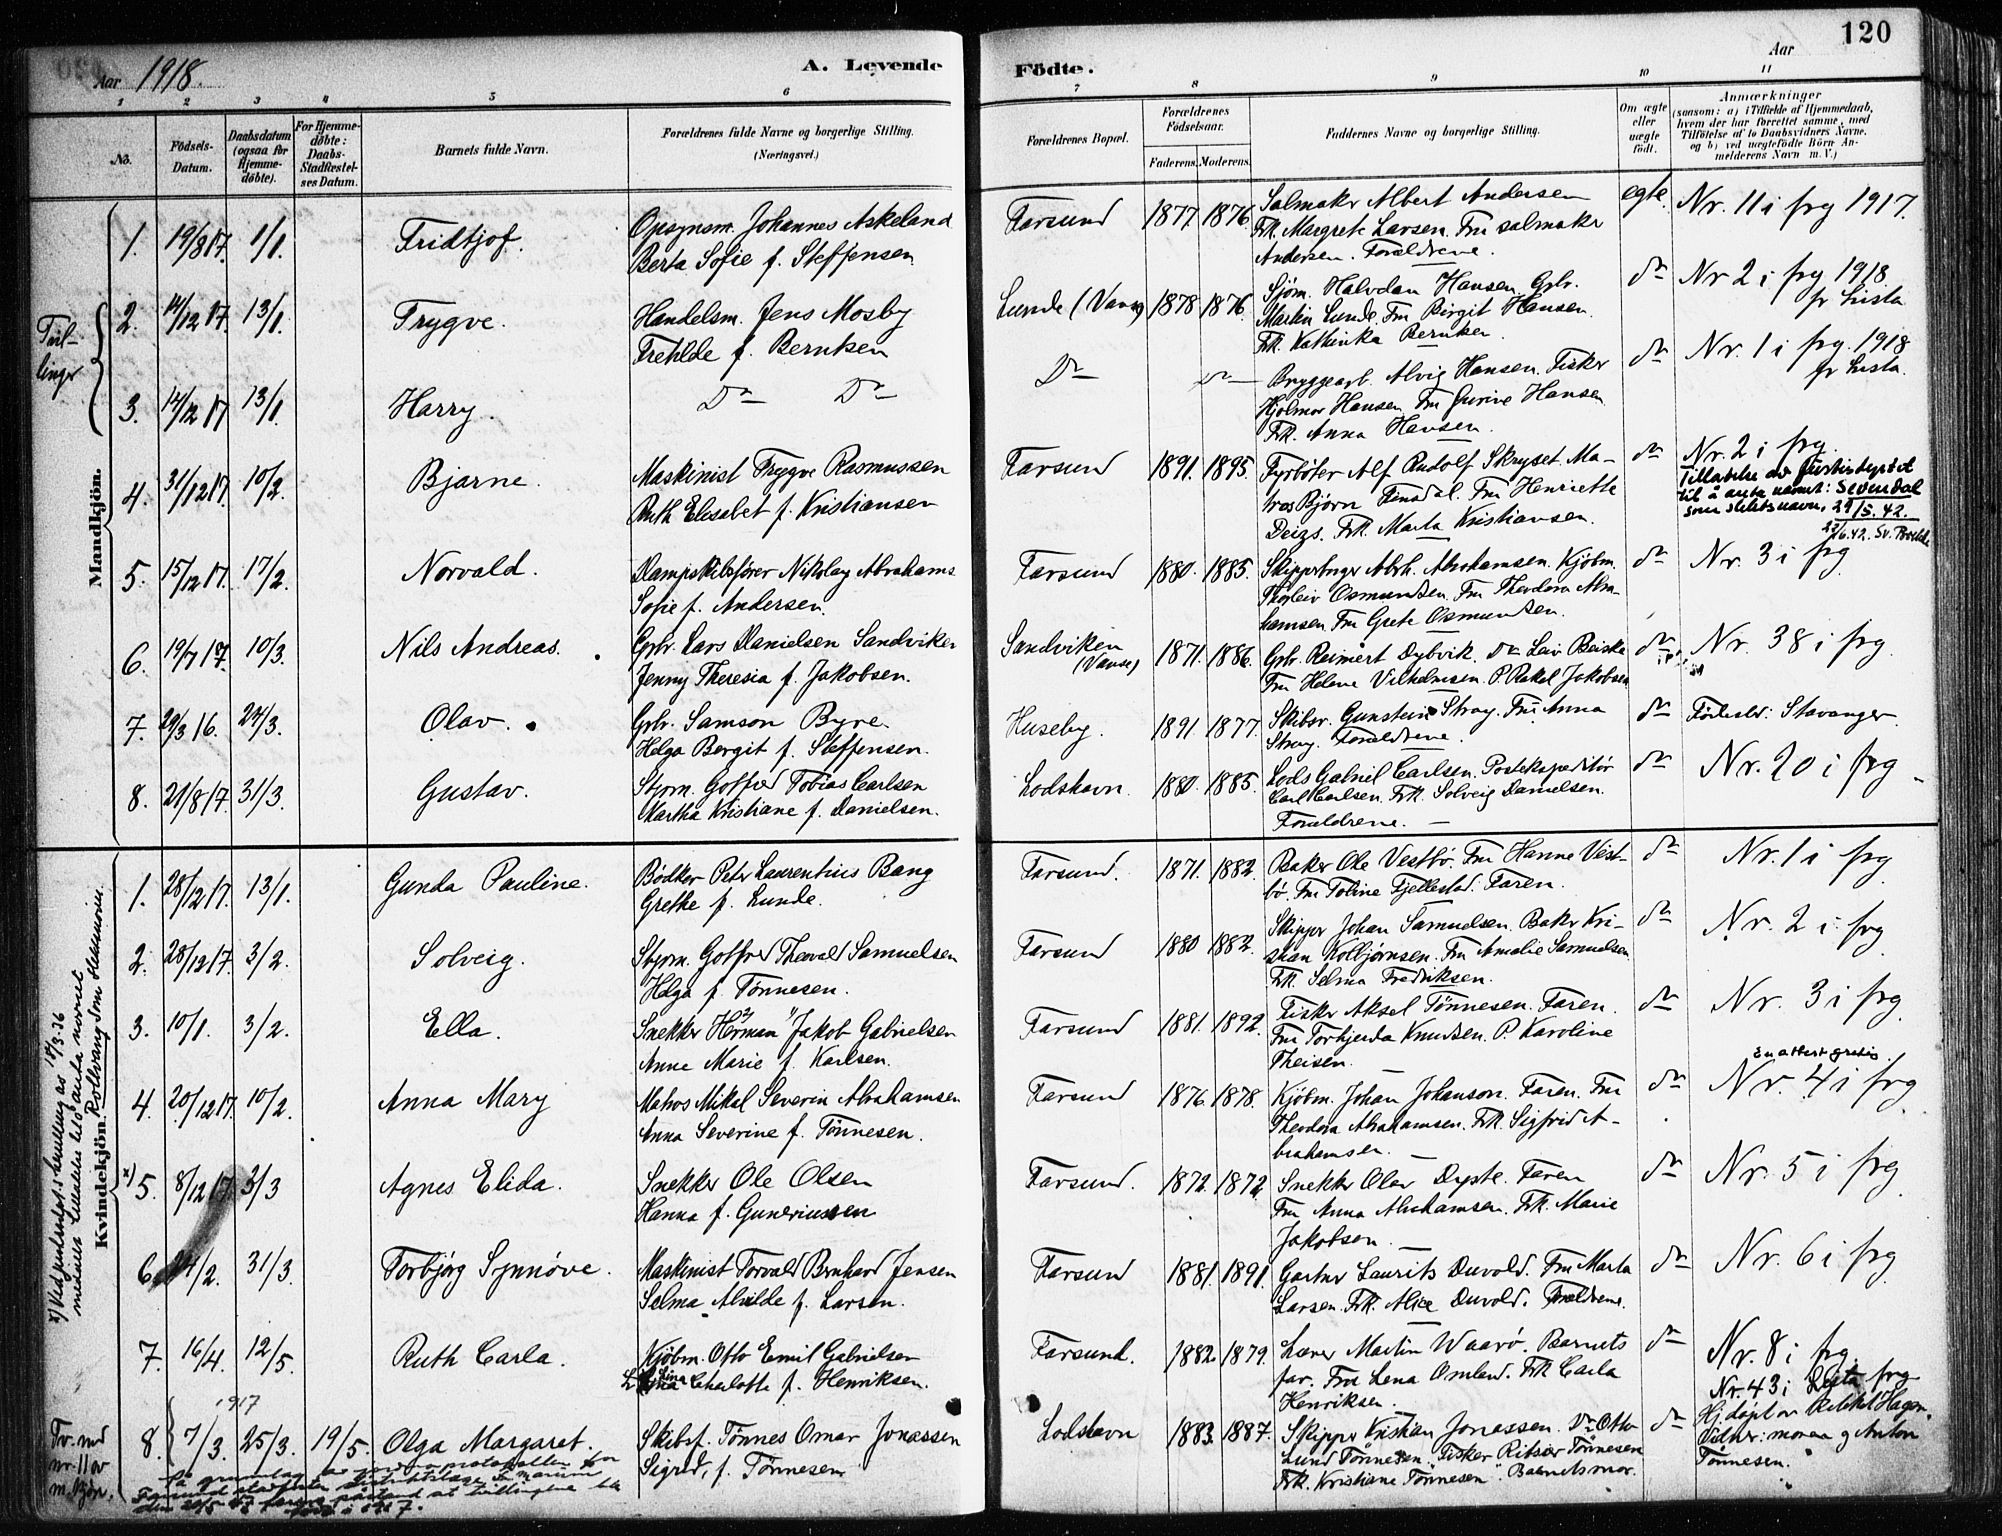 120
Aar 1918.
A. Levende
Födte.
Aar
1 2 3 4 5 6
7 8 9 10 11
No.
Födsels-Datum.
Daabsdatum (ogsaa for Hjemme-döbte).
For Hjemme-döbte: Daabs-Stadfæstel-ses Datum.
Barnets fulde Navn.
Forældrenes fulde Navne og borgerlige Stilling.
(Næringsvei.)
Forældrenes Bopæl.
Forældrenes Födselsaar.
Faderens. Moderens.
Faddernes Navne og borgerlige Stilling.
Om ægte eller uægte födt.
Anmærkninger
(saasom: a) i Tilfælde af Hjemmedaab,
hvem der har forrettet samme, med
Tilföielse af to Daabsvidners Navne.
og b) ved uægtefödte Börn An-
melderens Navn m. V.)
Mandkjön.
Tvil-
linger
1. 19/8 17. 1/1. Fridtjof. Opsynsm. Johannes Askeland
Berta Sofie f. Steffensen
Farsund 1877. 1876. Salmaker Albert Andersen
Frk. Margrete Larsen. Fru salmaker
Andersen. Forældrene.
egte. Nr. 11 i frg 1917.
2. 14/12 17. 13/1. Trygve. Handelsm. Jens Mosby
f. Berntsen
Lunde (Vanse) 1878 1876. Sjøm. Halvdan Hansen. Grbr.
Martin Lunde. Fru Birgit Hansen.
Frk. Kathinka Berntsen
do Nr 2 i frg 1918
fr Lista
3. 14/12 17 13/1 Harry. Do Do
Do do Bryggearb. Alvig Hansen. Fisker
Hjelmar Hansen. Fru Hansen
Frk. Anna Hansen.
do Nr. 1 i frg. 1918
fr Lista.
4. 31/12 17. 10/2. Bjarne. Maskinist Trygve Rasmussen
Ruth Elisabet f. Kristiansen
Farsund 1891. 1895. Fyrbøter Alf Rudolf Skryset. Ma-
tros Bjørn. Fru Henriette
Frk. Marta Kristiansen.
do Nr. 2 i frg.
Tillatelse av
til å anta navnet:
som slektsnavn, 29/5. 42.
5. 15/12 17. 17/2. Norvald. Dampskibsfører Nikolay Abrahams
Sofie f. Andersen.
Farsund 1880. 1885. Abrh. Abrahamsen. Kjøbm.
Osmundsen. Fru Theodora Abra-
hamsen. Fru Grete Osmundsen.
do Nr. 3 i frg.
6. 19/7 17. 10/3. Nils Andreas. Grbr. Lars Danielsen Sandviken
Jenny Theresia f. Jakobsen.
Sandviken
(Vanse) 1871. 1886. Grbr. Reimert Dybvik. Do Leiv
Fru Helene Vilhelmsen. P. Rakel Jakobsen
do Nr. 38 i frg.
7. 29/3 16. 24/3. Olav. Grbr. Samson Byre.
Helga Bergit f. Steffensen.
Huseby. 1891. 1877. Skibsr. Gunstein Stray. Fru Anna
Stray. Forældrene.
do Födested: Stavanger.
8. 21/8 17. 31/3. Gustav. Styrm. Gotfred Tobias Carlsen
Martha Kristiane f. Danielsen.
Lodshavn. 1880. 1885. Lods Gabriel Carlsen. Postekspeditör
Carl Carlsen. Frk. Solveig Danielsen.
Forældrene.
do Nr. 20 i frg
Kvindekjön.
1. 28/12 17. 13/1. Gunda Pauline. Bødker Peter Laurentius Bang
Grethe f. Lunde.
Farsund. 1871. 1882. Baker Ole Vestbö. Fru Hanne Vest-
bö. Fru Toline Fjellestad. Faren.
do Nr. 1 i frg
2. 28/12 17. 3/2. Solveig. Styrm. Gotfred Theovald Samuelsen
Helga f. Tönnesen.
Farsund 1880 1882. Skipper Johan Samuelsen. Baker Kri-
stian Kolbjørnsen. Fru Amalie Samuelsen
Frk. Selma Fredriksen.
do Nr. 2 i frg
3. 10/1. 3/2. Ella. Snekker Herman Jakob Gabrielsen
Anne Marie f. Karlsen.
Farsund 1881. 1892. Fisker Aksel Tønnesen. Faren.
Fru Torhjerda Knudsen. P. Karoline
Theisen.
do Nr. 3 i frg
4. 20/12 17. 10/2. Anna Mary Matros Mikal Severin Abrahamsen
Anna Severine f. Tönnesen.
Farsund 1876. 1878. Kjöbm. Johan Johanson. Faren. Fru
Theodora Abrahamsen. Frk. Sigfrid A-
brahamsen.
do En attest gratis.
Nr. 4 i frg
x) 5. 8/12 17 3/3 Agnes Elida. Snekker Ole Olsen
Hanna f. Guneriussen
Farsund. 1872. 1872 Snekker Olav Dyste. Faren
Fru Anna Abrahamsen. Frk. Marie
Jakobsen.
do Nr. 5 i frg
x) Ved justisdep.s bevilling av 18/3. 36
meddeles tilladelse til å anta navnet
Rollvang som slektsnavn.
6. 24/2. 31/3. Torbjörg Synnöve. Maskinist Torvald Bernhard Jensen
Selma Alvilde f. Larsen.
Farsund 1881. 1891. Gartner Laurits Duvold. Fru Marta
Larsen. Frk. Alice Duvold. Forældrene.
do Nr. 6 i frg
7. 16/4. 12/5. Ruth Carla. Kjöbm. Otto Emil Gabrielsen
Charlotte f. Henriksen.
Farsund. 1882. 1879. Lærer Martin Waarö. Barnets
far. Fru Lena Omland. Frk. Carla
Henriksen.
do Nr. 8 i frg.
1917
8. 7/3. 25/3. 19/5. Olga Margaret. Skibsf. Tönnes Omar Jonassen
Sigrid, f. Tönnesen
Lodshavn 1883. 1887. Skipper Kristian Jonassen. Do Otto
Lund Tönnesen. Fisker Tönnesen
Frk. Kristiane Tönnesen. Barnets mor.
do Nr. 43 i Lista frg
Hj.døpt av Hagen.
Vidner: moren og Anton
Tönnesen.
Tv. med
nr. 11 av
m.kjön.